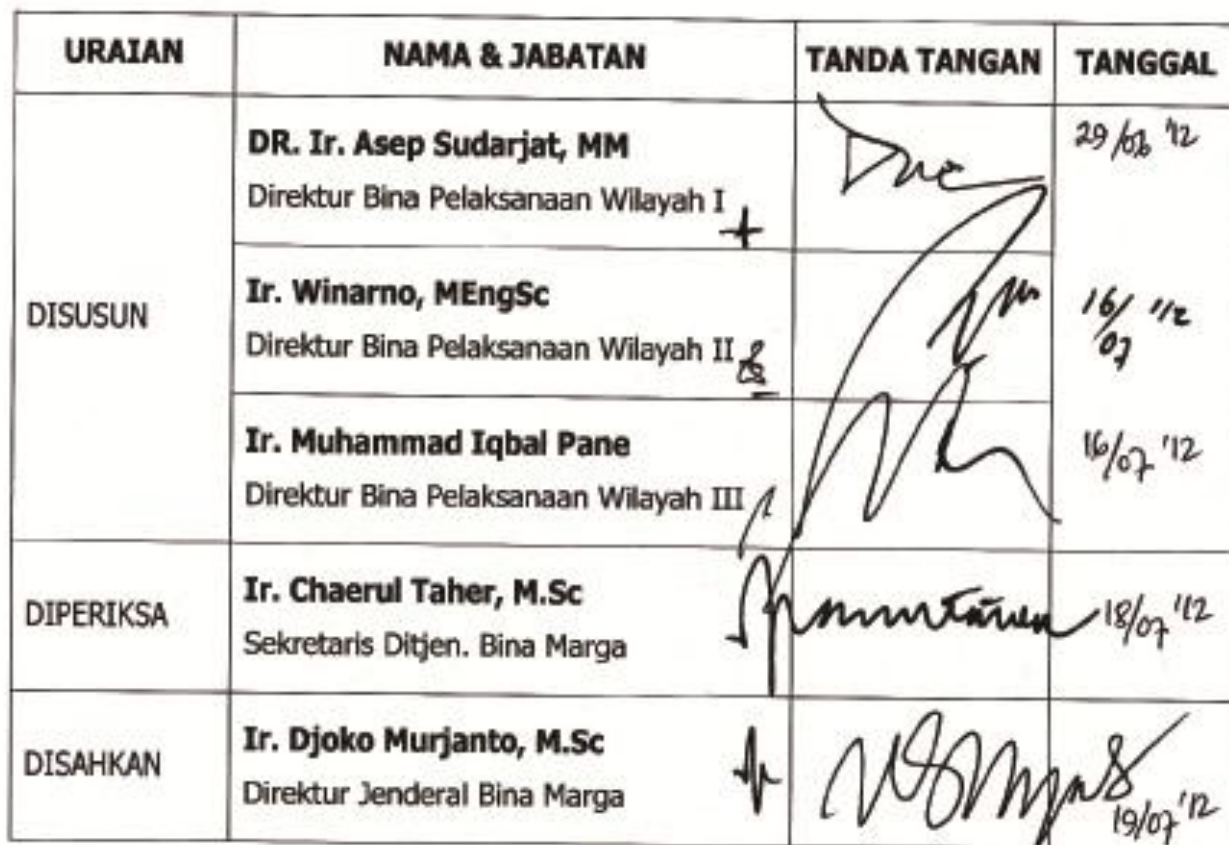 URAIAN NAMA & JABATAN TANDA TANGAN TANGGAL
DR. Ir. Asep Sudarjat, MM 29/06 '12
Direktur Bina Pelaksanaan Wilayah I
DISUSUN
Ir. Winarno, MEngSc 16/07 '12
Direktur Bina Pelaksanaan Wilayah II
Ir. Muhammad Iqbal Pane 16/07 '12
Direktur Bina Pelaksanaan Wilayah III
DIPERIKSA
Ir. Chaerul Taher, M.Sc 18/07 '12
Sekretaris Ditjen. Bina Marga
DISAHKAN
Ir. Djoko Murjanto, M.Sc
Direktur Jenderal Bina Marga 19/07 '12